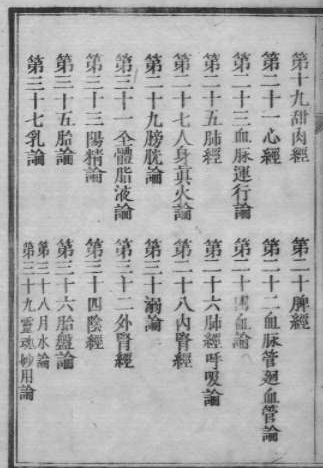 第十九甜肉經
第二十脾經
第二十一心經
第二十二血脉管廻血管論
第二十三血脉運行論
第二十四血論
第二十五肺經
第二十六肺經呼吸論
第二十七人身真火論
第二十八內腎經
第二十九膀胱論
第三十溺論
第三十一全體脂液論
第三十二外腎經
第三十三陽精論
第三十四陰經
第三十五胎論
第三十六胎盤論
第三十七乳論
第三十八月水論
第三十九靈魂妙用論